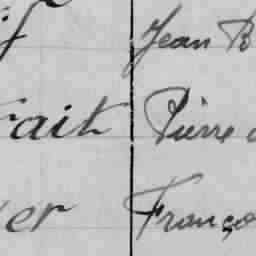 f Jean B
rait Pierre
er Franço